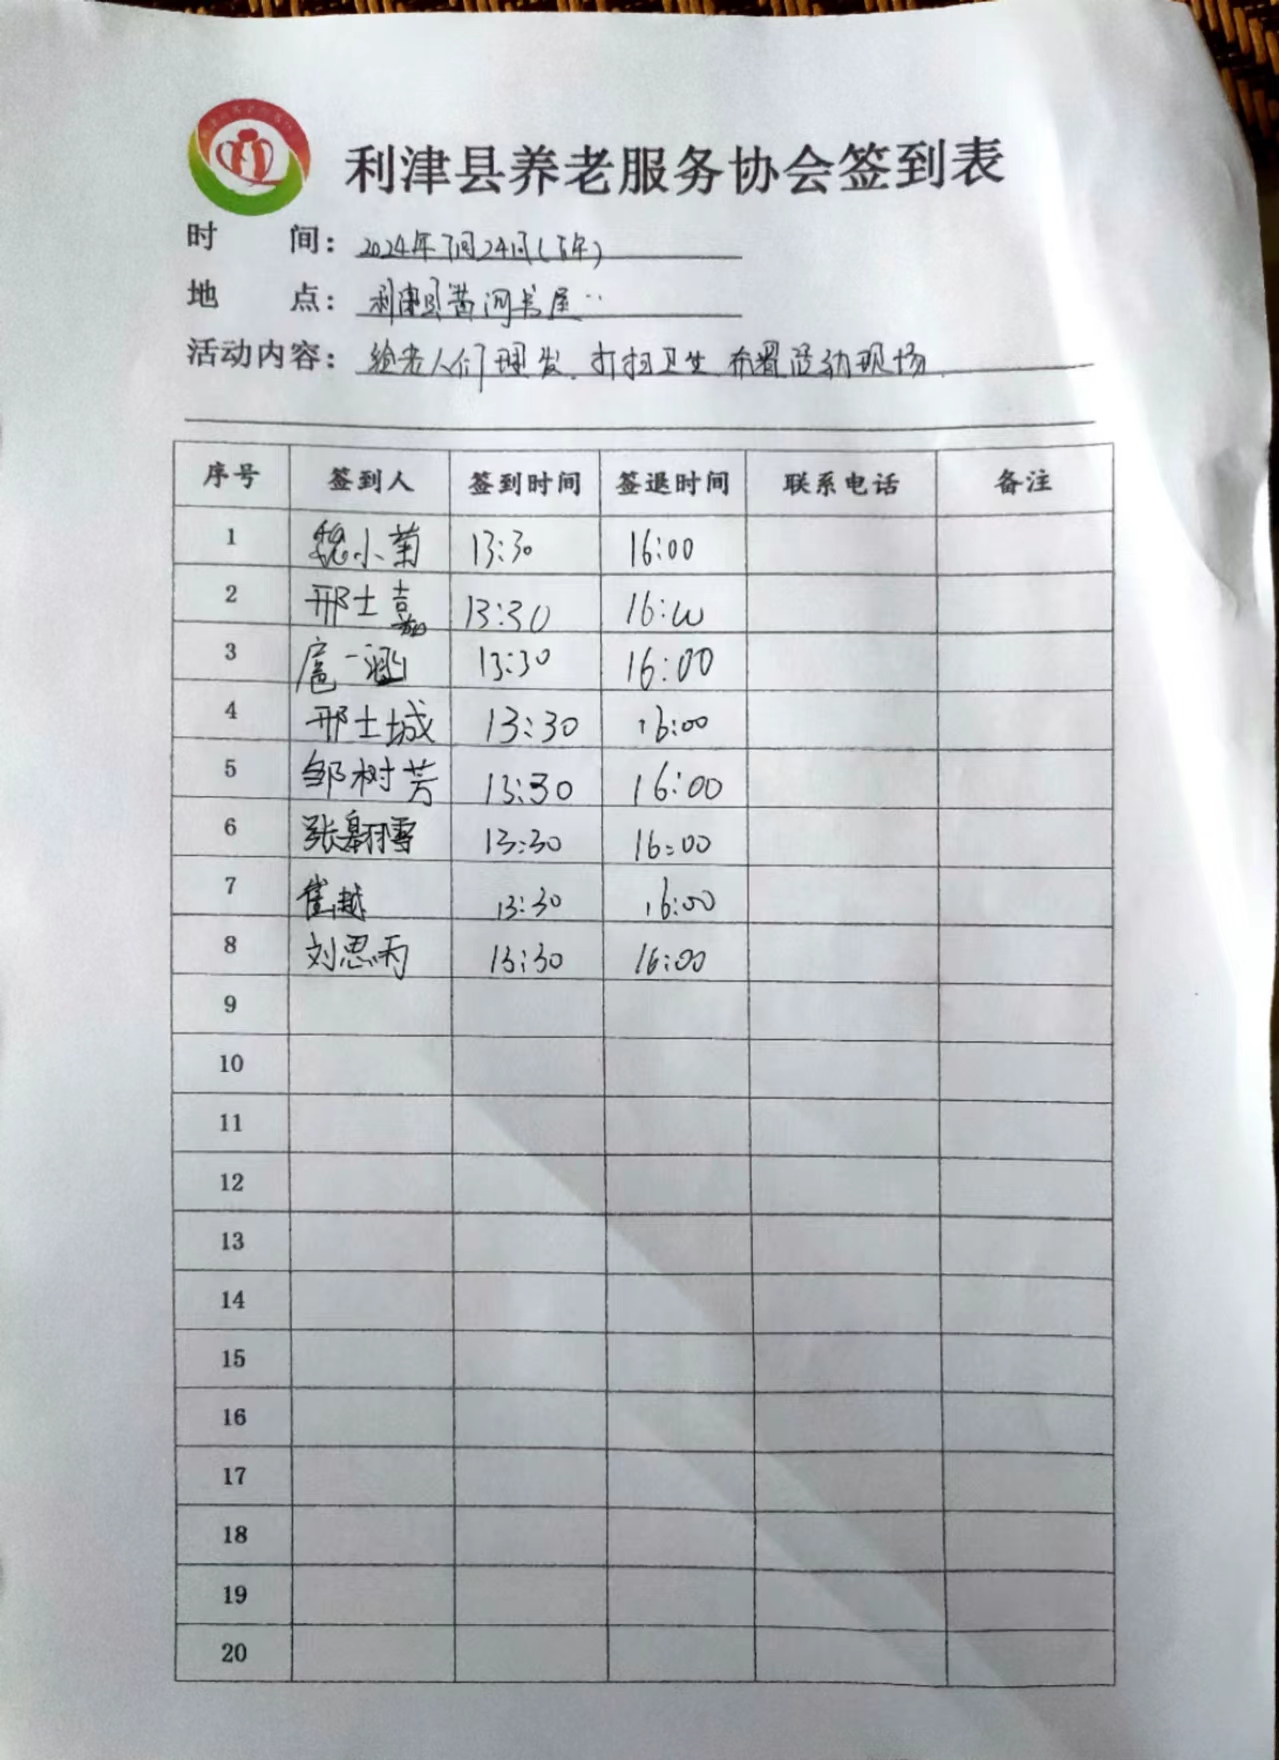 利津县养老服务协会签到表
时 间：2024年7月24日（下午）
地 点：利津县黄河书屋
活动内容：给老人们理发、打扫卫生 布置活动现场
序号 签到人 签到时间 签退时间 联系电话 备注
1 魏小菊 13:30 16:00
2 邢士嘉 13:30 16:00
3 扈一涵 13:30 16:00
4 邢士城 13:30 16:00
5 邹树芳 13:30 16:00
6 张翱雪 13:30 16:00
7 崔越 13:30 16:00
8 刘思雨 13:30 16:00
9
10
11
12
13
14
15
16
17
18
19
20